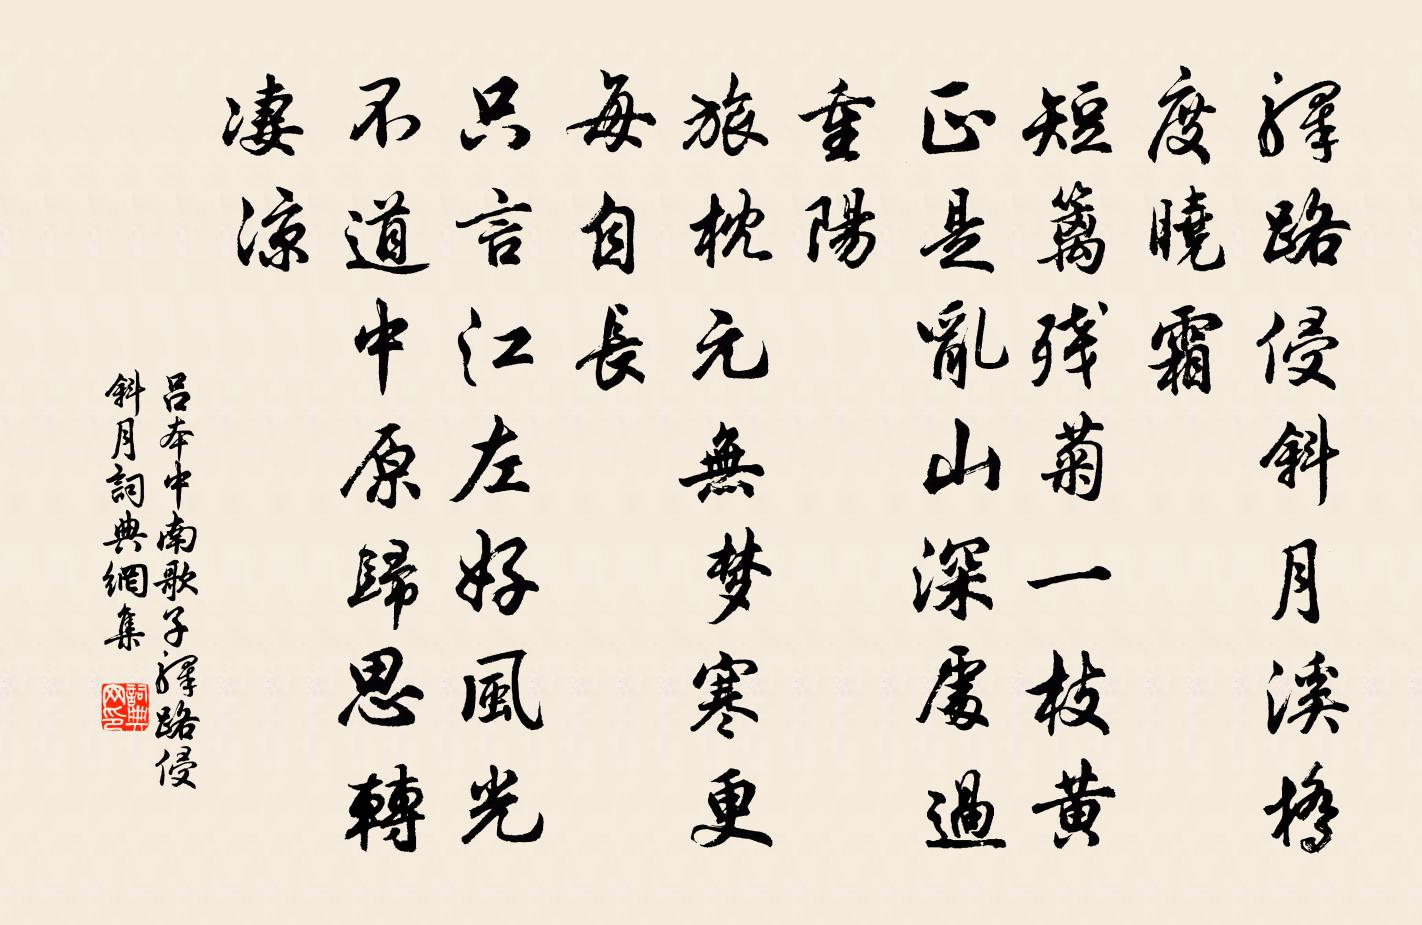 驛路侵斜月溪橋
度曉霜
短籬残菊一枝黄
正是亂山深處過
重陽
旅枕元無梦寒更
每自長
只言江左好風光
不道中原歸思轉
凄涼
吕本中南歌子驛路侵
斜月詞典網集
詞典
网印